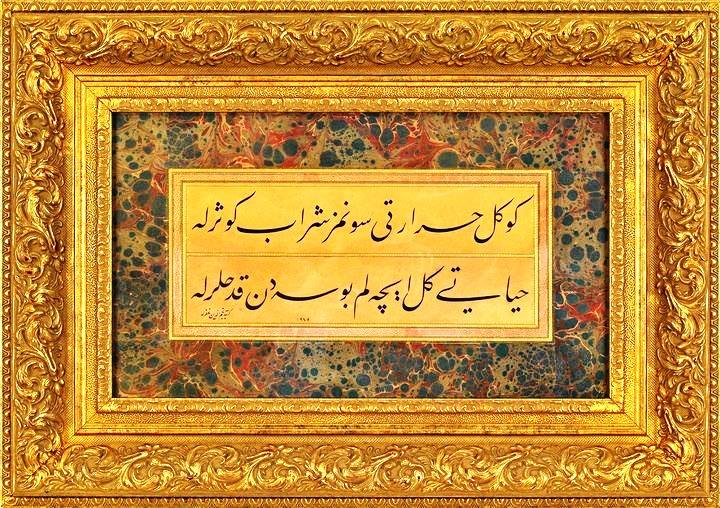 كوكل حرارتی سونمز شراب كوثرله
حیاتی كل ایچه لم بوسه دن قدحلرله